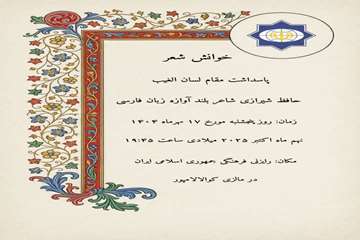 خوانش شعر
پاسداشت مقام لسان الغیب
حافظ شیرازی شاعر بلند آوازه زبان فارسی
زمان: روز پنجشنبه مورخ ۱۷ مهرماه ۱۴۰۴
نهم ماه اکتبر ۲۰۲۵ میلادی ساعت ۱۹:۴۵
مکان: رایزنی فرهنگی جمهوری اسلامی ایران
در مالزی کوالالامپور